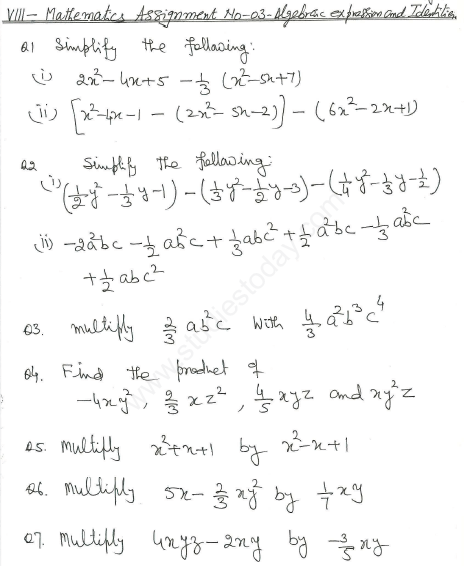 VIII - Mathematics Assignment No-03-Algebraic expression and Identities
Q1 Simplify the following:
(i) 2x²-4x+5 - 1/3 (x²-5x+7)
(ii) [x²-4x-1 - (2x²-5x-2)] - (6x²-2x+1)
Q2 Simplify the following:
(i) (1/2 y² - 1/3 y - 1) - (1/3 y² - 1/2 y - 3) - (1/4 y² - 1/3 y - 1/2)
(ii) -2a²bc - 1/2 ab²c + 1/3 abc² + 1/2 a²bc - 1/3 ab²c
+ 1/2 abc²
Q3. multiply 2/3 ab²c with 4/3 a²b³c⁴
Q4. Find the product of
-4xy², 2/3 xz², 4/5 xyz and xy²z
Q5. Multiply x²+x+1 by x²-x+1
Q6. Multiply 5x - 2/3 xy² by 1/7 xy
Q7. Multiply 4xyz - 2xy by -3/5 xy
www.studiestoday.com